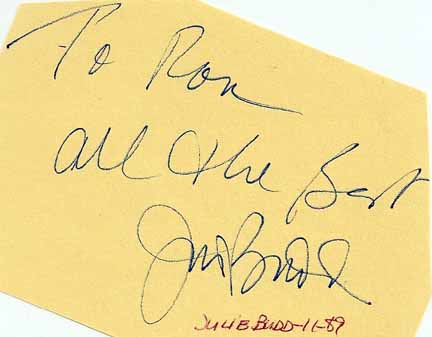 To Ron
all the Best
Julie Budd
JULIE BUDD-11-89